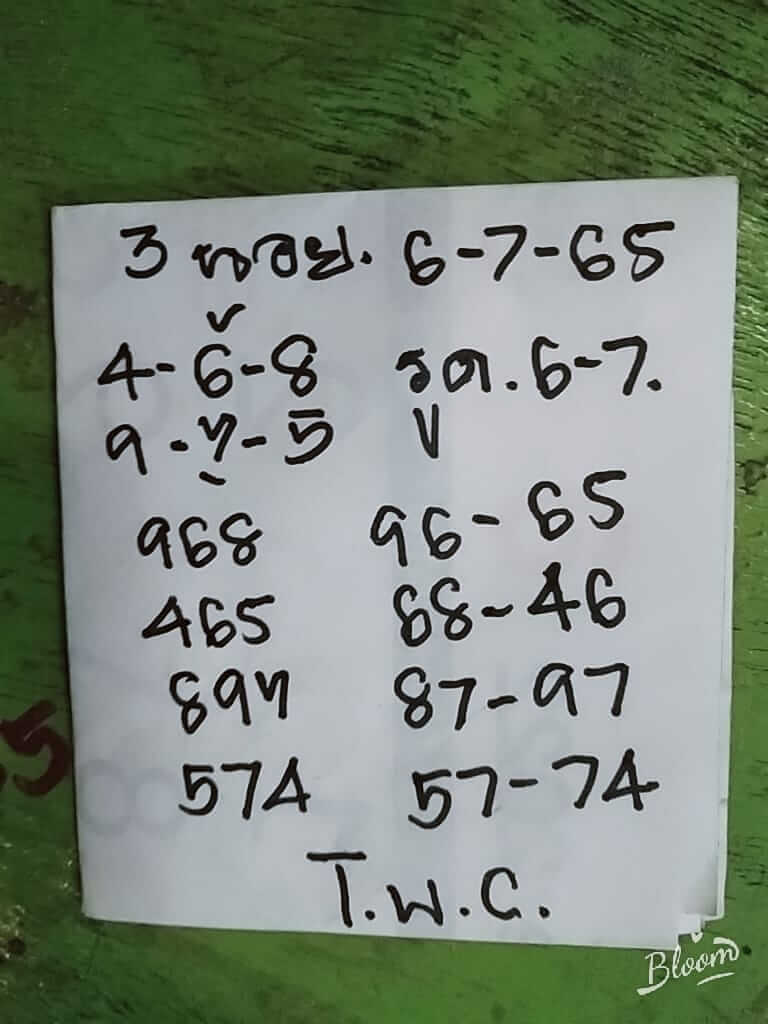 3 นอย. 6-7-65
4-6-8 รด. 6-7.
9-7-5 V
968 96-65
465 68-46
897 87-97
574 57-74
T.W.C.
5
Bloom